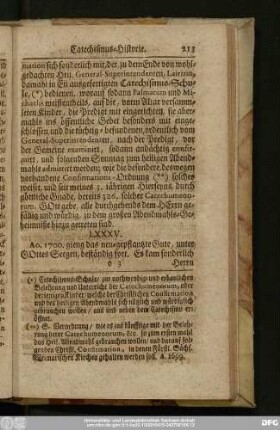 Catechismus-Historie. 213
mation sich sonderlich mit, der, zu dem Ende von wohl-
gedachten Hrn. General-Superintendenten, Lairizen,
damahls in ausgefertigten Catechismus-Schu-
le, (*) bedienen, worauf sodann Palmarum und Mi-
chaelis meistentheils, auf die, vorm Altar versamm-
leten Kinder, die Predigt mit eingerichtet, sie aber-
mahls ins öffentliche Gebet besonders mit einge-
schlossen, und die tüchtig-befundenen, ordentlich vom
General-Superintendenten, nach der Predigt, vor
der Gemeine examinirt, sodann andächtig
und folgenden Sonntag zum heiligen Abend-
mahl admittirt worden; wie die besondere, deswegen
vorhandene Confirmations-Ordnung (**) solches
weiset, und seit meines 7. jährigen Hierseyns, durch
göttliche Gnade, bereits 526. solcher Catechumeno-
rum, GOtt gebe, alle durchgehends dem HErrn ge-
fällig und würdig, zu dem großen Abendmahls-Ge-
heimniße hinzu getreten sind.
LXXXV.
Ao. 1700. gieng das neu-gepflanzte Gute, unter
GOttes Seegen, beständig fort. Es kam sonderlich
o 3 Herrn
(*) Catechismus-Schule, zur nothwendig- und erbaulichen
Belehrung und Unterricht der Catechumenorum, oder
derjenigen Kinder, welche der Christlichen Confirmation
und des heiligen Abendmahls sich nützlich und würdiglich
gebrauchen wollen; aus und neben dem Catechismo er-
öffnet.
(**) S. Verordnung, wie es ins künfftige mit der Beleh-
rung derer Catechumenorum, &c. so zum ersten mahl
des Heil. Abendmahls gebrauchen wollen und darauf fol-
gender Christl. Confirmation, in denen Fürstl. Sächs.
Weimarischen Kirchen gehalten werden soll. A. 1699.
DFG